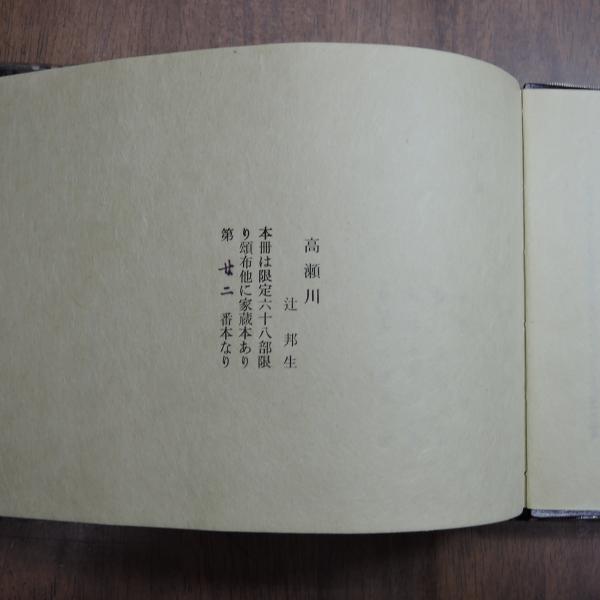 高瀬川
辻 邦生
本冊は限定六十八部限
り頒布他に家蔵本あり
第 廿二 番本なり